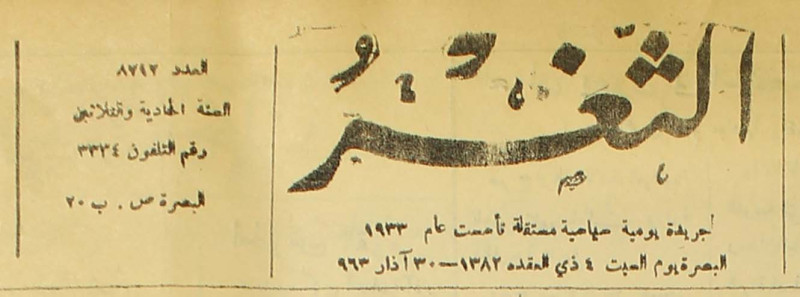 الثَّغْرُ
جريدة يومية سياسية مستقلة تأسست عام ١٩٣٣
البصرة يوم السبت ٤ ذي القعده ١٣٨٢ — ٣٠ آذار ٩٦٣
العدد ٨٧٩٢
السنة الحادية والثلاثين
رقم التلفون ٣٣٣٤
البصرة ص . ب ٢٠